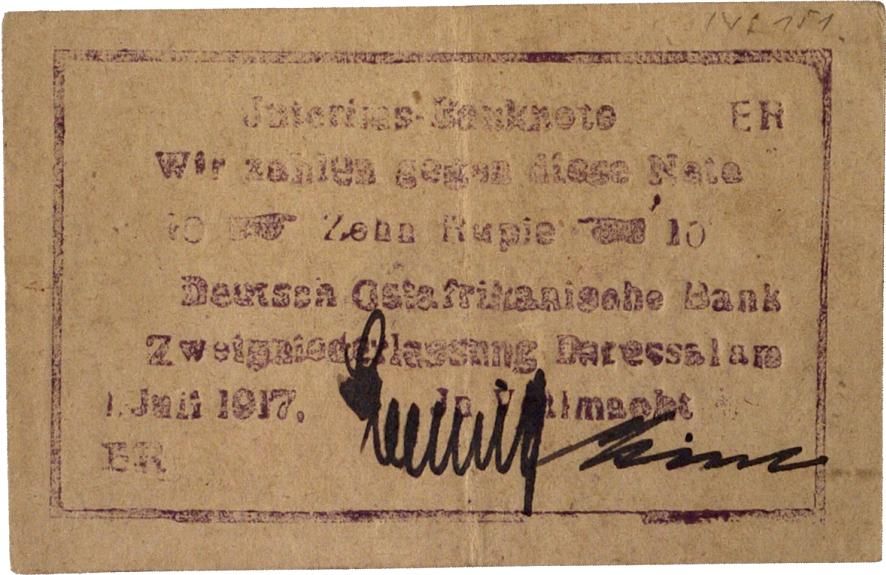 151
Interims-Banknote ER
Wir zahlen gegen diese Note
10 Zehn Rupie 10
Deutsch Ostafrikanische Bank
Zweigniederlassung Daressalam
1. Juli 1917. In Vollmacht
ER